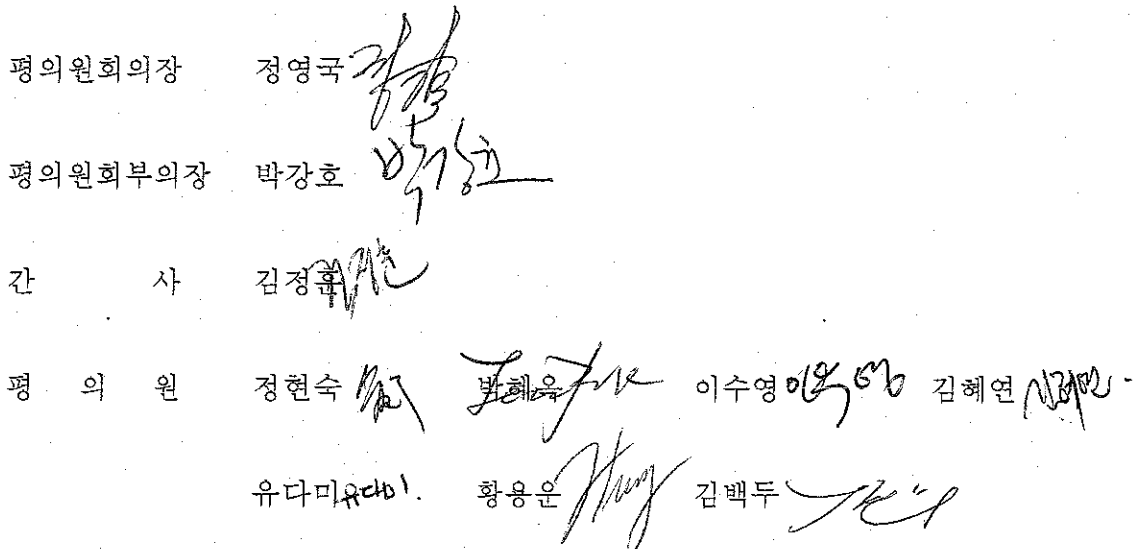 평의원회의장 정영국
평의원회부의장 박강호 박강호
간 사 김정훈
평 의 원 정현숙 박혜옥 이수영 이수영 김혜연
유다미 유다미. 황용운 김백두